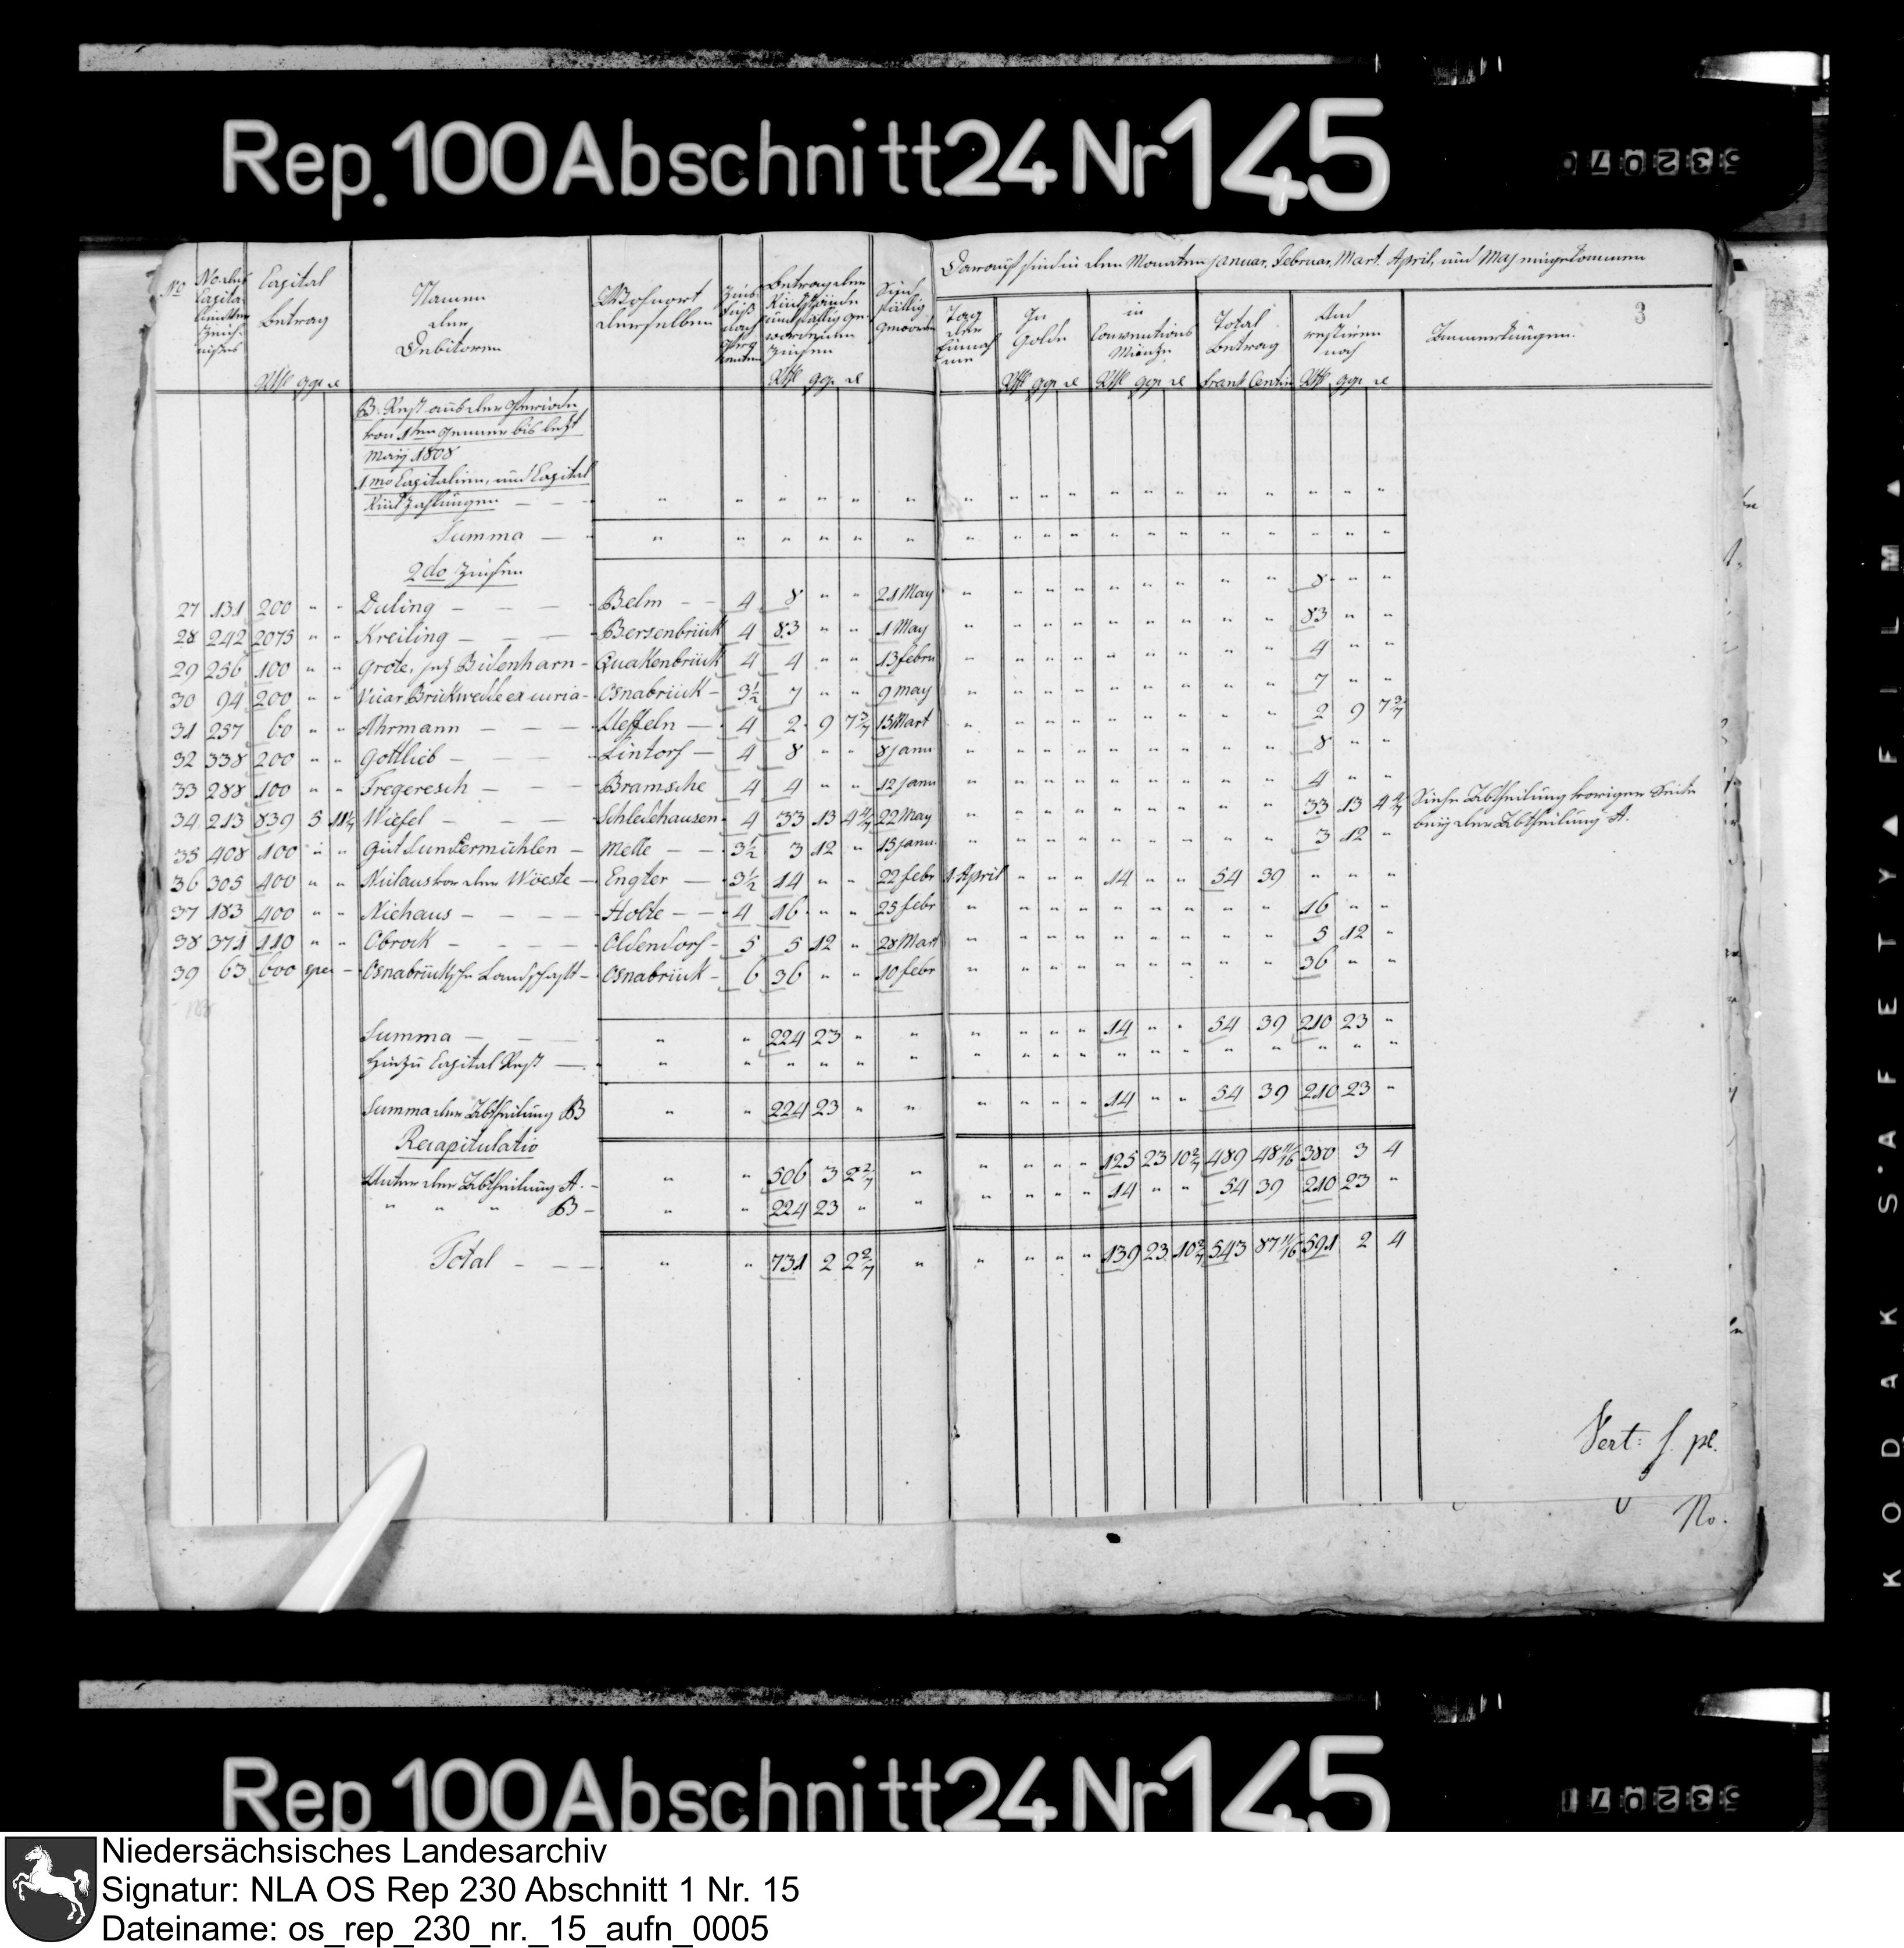 Rep. 100 Abschnitt 24 Nr 145
532070
3
Darauf sind in den Monaten Januar, Februar, Mart. April, und May eingekommen
No
No des Capitalien Verzeichnißes
Capital Betrag
Namen der Debitoren
Wohnort derselben
Zins fuß nach Prozenten
Betrag der Rückstände und fällig gewordenen Zinsen
Sind fällig geworden
Tag der Einnahme
In Golde
in Conventions Münze
Total Betrag
Und restiren noch
Bemerkungen.
Rthl ggr d Rthl ggr d Rthl ggr d Rthl ggr d Frank Centim Rthl ggr d
B. Rest aus der Periode
von 1ten Jenner bis letzt
May 1808
1mo Capitalien, und Capital
Rückzahlungen — — " " " " " " " " " " " " " " " " "
Summa — " " " " " " " " " " " " " " " " "
2do Zinsen
27 131 200 " " Duling — — — Belm — — 4 8 " " 21 May " " " " " " " " " 8 " "
28 242 2075 " " Kreiling — — — Bersenbrück 4 83 " " 1 May " " " " " " " " " 83 " "
29 256 100 " " Grote, jetz Bidenharn - Quakenbrück 4 4 " " 13 febru " " " " " " " " " 4 " "
30 94 200 " " Vicar Brickwedde ex curia - Osnabrück - 3½ 7 " " 9 may " " " " " " " " " 7 " "
31 257 60 " " Ahrmann — — — Ueffeln — 4 2 9 7 2/7 13 Mart " " " " " " " " " 2 9 7 2/7
32 338 200 " " Gottlieb — — — Lintorf — 4 8 " " 8 janu " " " " " " " " " 8 " "
33 288 100 " " Fregeresch — — — Bramsche 4 4 " " 12 janu " " " " " " " " " 4 " "
34 213 839 5 11 4/7 Wiesel — — — Schledehausen 4 33 13 4 4/7 22 May " " " " " " " " " 33 13 4 4/7 Siehe Abtheilung voriger Seite
bey der Abtheilung A.
35 408 100 " " Gut Sundermühlen — Melle — — 3½ 3 12 " 15 janu. " " " " " " " " " 3 12 "
36 305 400 " " Niclaus von der Wöeste — Engter — 3½ 14 " " 22 febr 1 April " " " 14 " " 54 39 " " "
37 183 400 " " Niehaus — — — — Holte — — 4 16 " " 25 febr " " " " " " " " " 16 " "
38 371 110 " " Obrock — — — — Oldendorf - 5 5 12 " 28 Mart " " " " " " " " " 5 12 "
39 63 600 spe - Osnabrücksche Landschaft - Osnabrück - 6 36 " " 10 febr " " " " " " " " " 36 " "
Summa — — — " " 224 23 " " " " " " 14 " " 54 39 210 23 "
Hinzu Capital Rest — " " " " " " " " " " " " " " " " " "
Summa der Abtheilung B " " 224 23 " " " " " " 14 " " 54 39 210 23 "
Recapitulatio
Unter der Abtheilung A. - " " 506 3 2 2/7 " " " " " 125 23 10 2/7 489 48 11/16 380 3 4
" " " B - " " 224 23 " " " " " " 14 " " 54 39 210 23 "
Total — — — " " 731 2 2 2/7 " " " " " 139 23 10 2/7 543 87 11/16 591 2 4
Vert: f. pl.
No.
KODAK SAFETY FILM
Rep 100 Abschnitt 24 Nr 145
532071
Niedersächsisches Landesarchiv
Signatur: NLA OS Rep 230 Abschnitt 1 Nr. 15
Dateiname: os_rep_230_nr._15_aufn_0005